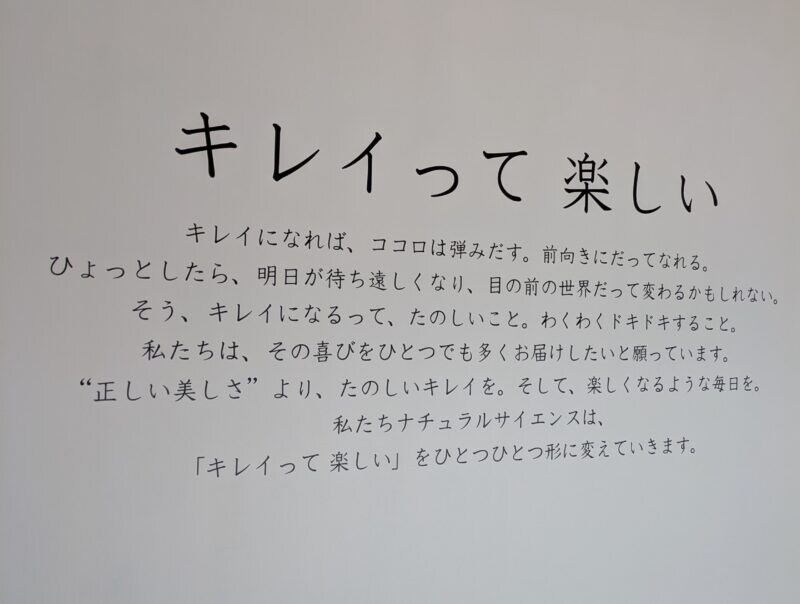 キレイって 楽しい
キレイになれば、ココロは弾みだす。前向きにだってなれる。
ひょっとしたら、明日が待ち遠しくなり、目の前の世界だって変わるかもしれない。
そう、キレイになるって、たのしいこと。わくわくドキドキすること。
私たちは、その喜びをひとつでも多くお届けしたいと願っています。
“正しい美しさ”より、たのしいキレイを。そして、楽しくなるような毎日を。
私たちナチュラルサイエンスは、
「キレイって 楽しい」をひとつひとつ形に変えていきます。